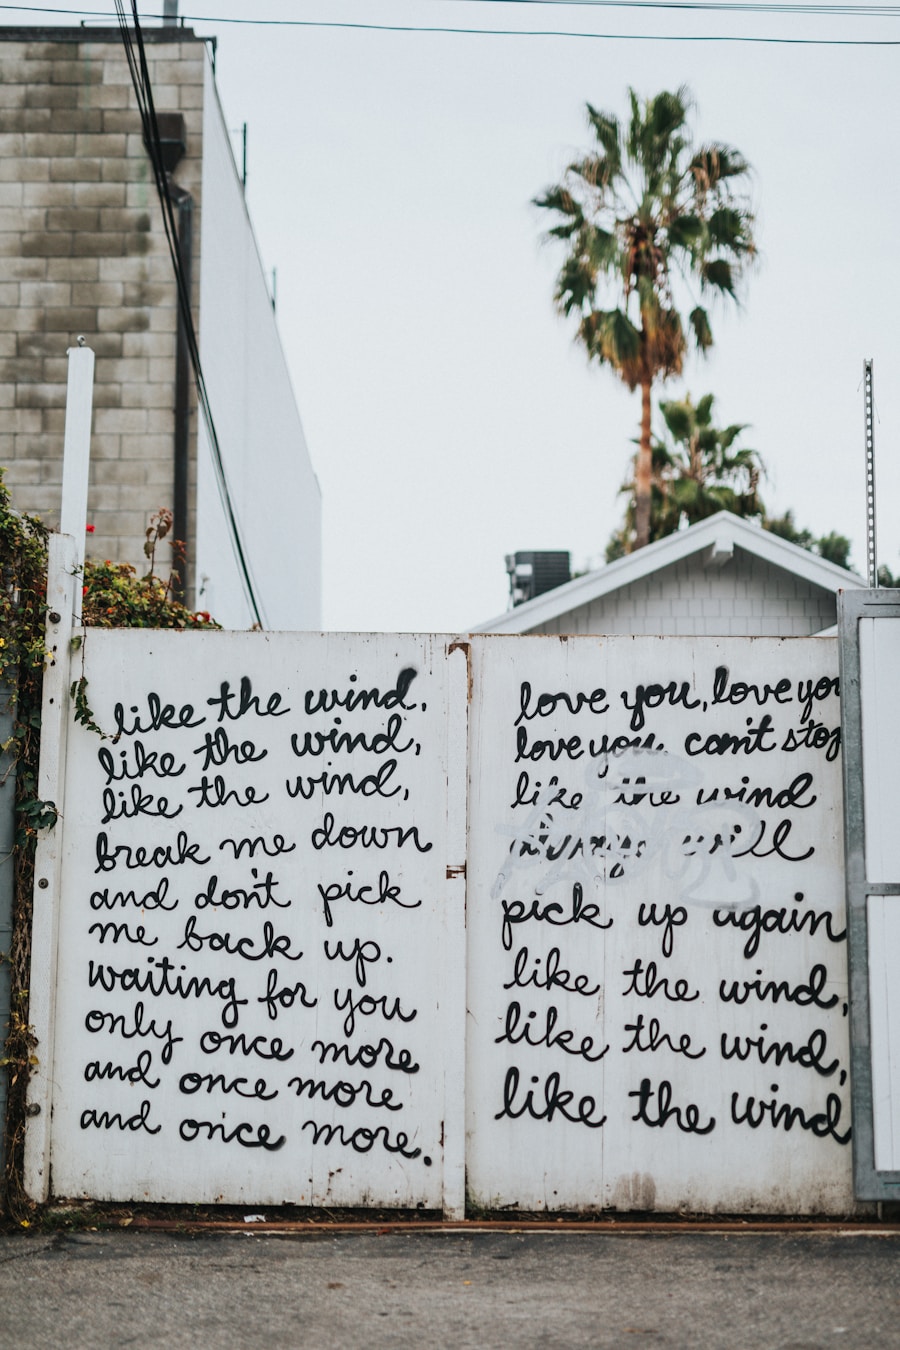 like the wind,
like the wind,
like the wind,
break me down
and don't pick
me back up.
waiting for you
only once more
and once more
and once more.
love you, love you
love you, can't stop
like the wind
will
pick up again
like the wind,
like the wind,
like the wind